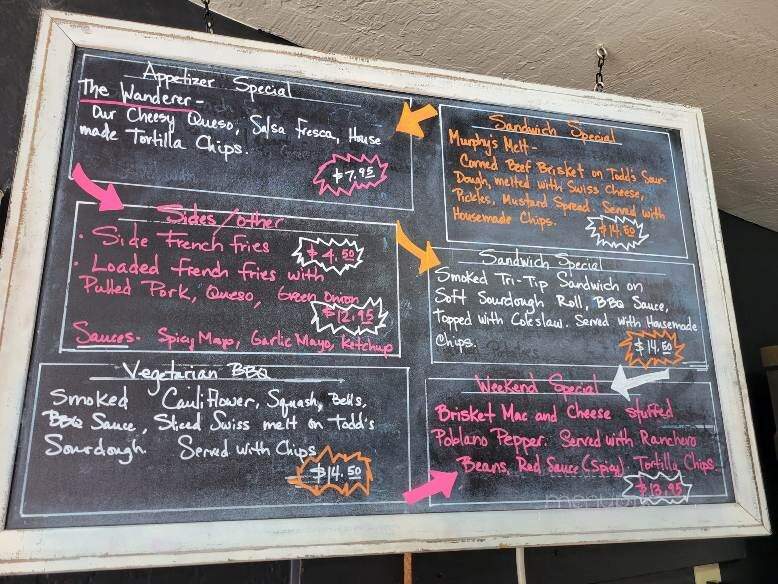 Appetizer Special
The Wanderer -
Our Cheesy Queso, Salsa Fresca, House
made Tortilla Chips.
$7.95
Sides/other
· Side French Fries
$4.50
· Loaded French Fries with
Pulled Pork, Queso, Green Onion
$12.95
Sauces - Spicy Mayo, Garlic Mayo, Ketchup
Vegetarian BBQ
Smoked Cauliflower, Squash, Bells,
BBQ Sauce, Sliced Swiss melt on Todd's
Sourdough. Served with Chips
$14.50
Sandwich Special
Murphy's Melt -
Corned Beef Brisket on Todd's Sour-
Dough, melted with Swiss Cheese,
Pickles, Mustard Spread. Served with
Housemade Chips.
$14.50
Sandwich Special
Smoked Tri-Tip Sandwich on
Soft Sourdough Roll, BBQ Sauce,
topped with Coleslaw. Served with Housemade
Chips.
$14.50
Weekend Special
Brisket Mac and Cheese stuffed
Poblano Pepper. Served with Ranchero
Beans, Red Sauce (Spicy). Tortilla Chips
$13.95